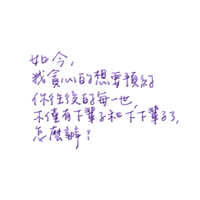 如今，
我貪心的想要預約
你往後的每一世，
不僅有下輩子和下下輩子了，
怎麼辦？